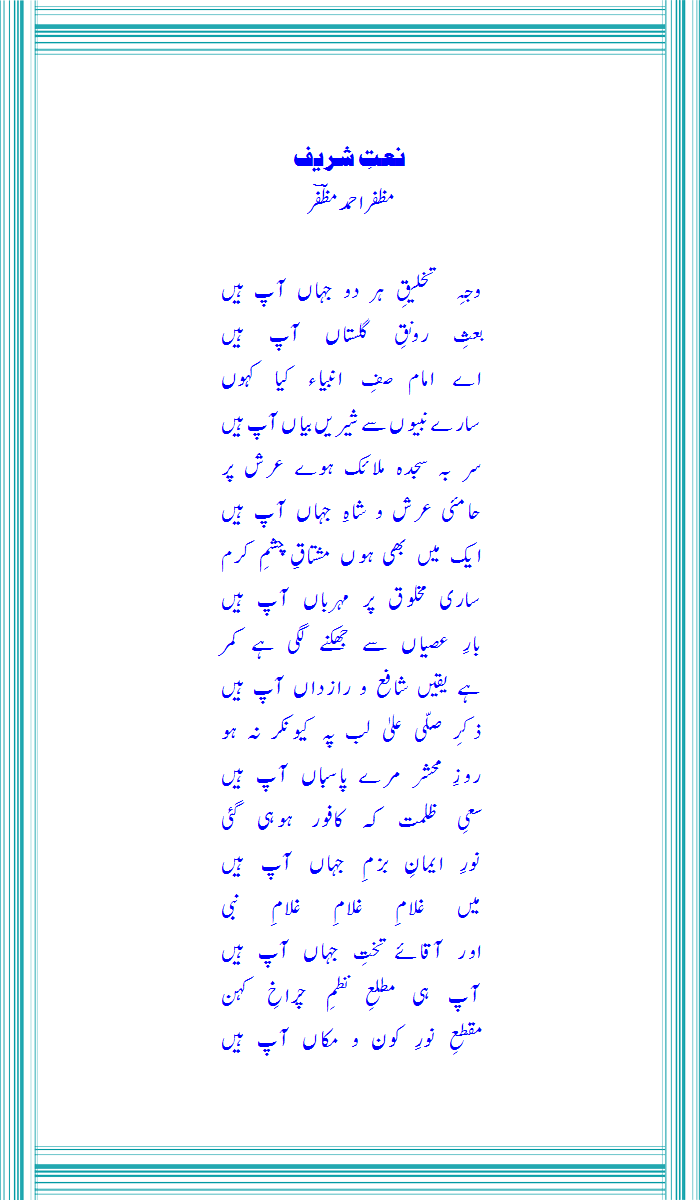 نعتِ شریف
مظفر احمد مظفؔر
وجہِ تخلیقِ ہر دو جہاں آپ ہیں
بعثِ رونقِ گلستاں آپ ہیں
اے امام صفِ انبیاء کیا کہوں
سارے نبیوں سے شیریں بیاں آپ ہیں
سر بہ سجدہ ملائک ہوے عرش پر
حامئی عرش و شاہِ جہاں آپ ہیں
ایک میں بھی ہوں مشتاقِ چشمِ کرم
ساری مخلوق پر مہرباں آپ ہیں
بارِ عصیاں سے جھکنے لگی ہے کمر
ہے یقیں شافع و رازداں آپ ہیں
ذکرِ صلّی علیٰ لب پہ کیونکر نہ ہو
روزِ محشر مرے پاسباں آپ ہیں
سعیِ ظلمت کہ کافور ہو ہی گئی
نورِ ایمانِ بزمِ جہاں آپ ہیں
میں غلامِ غلامِ غلامِ نبی
اور آقائے تختِ جہاں آپ ہیں
آپ ہی مطلعِ نظمِ چراخِ کہن
مقطعِ نورِ کون و مکاں آپ ہیں